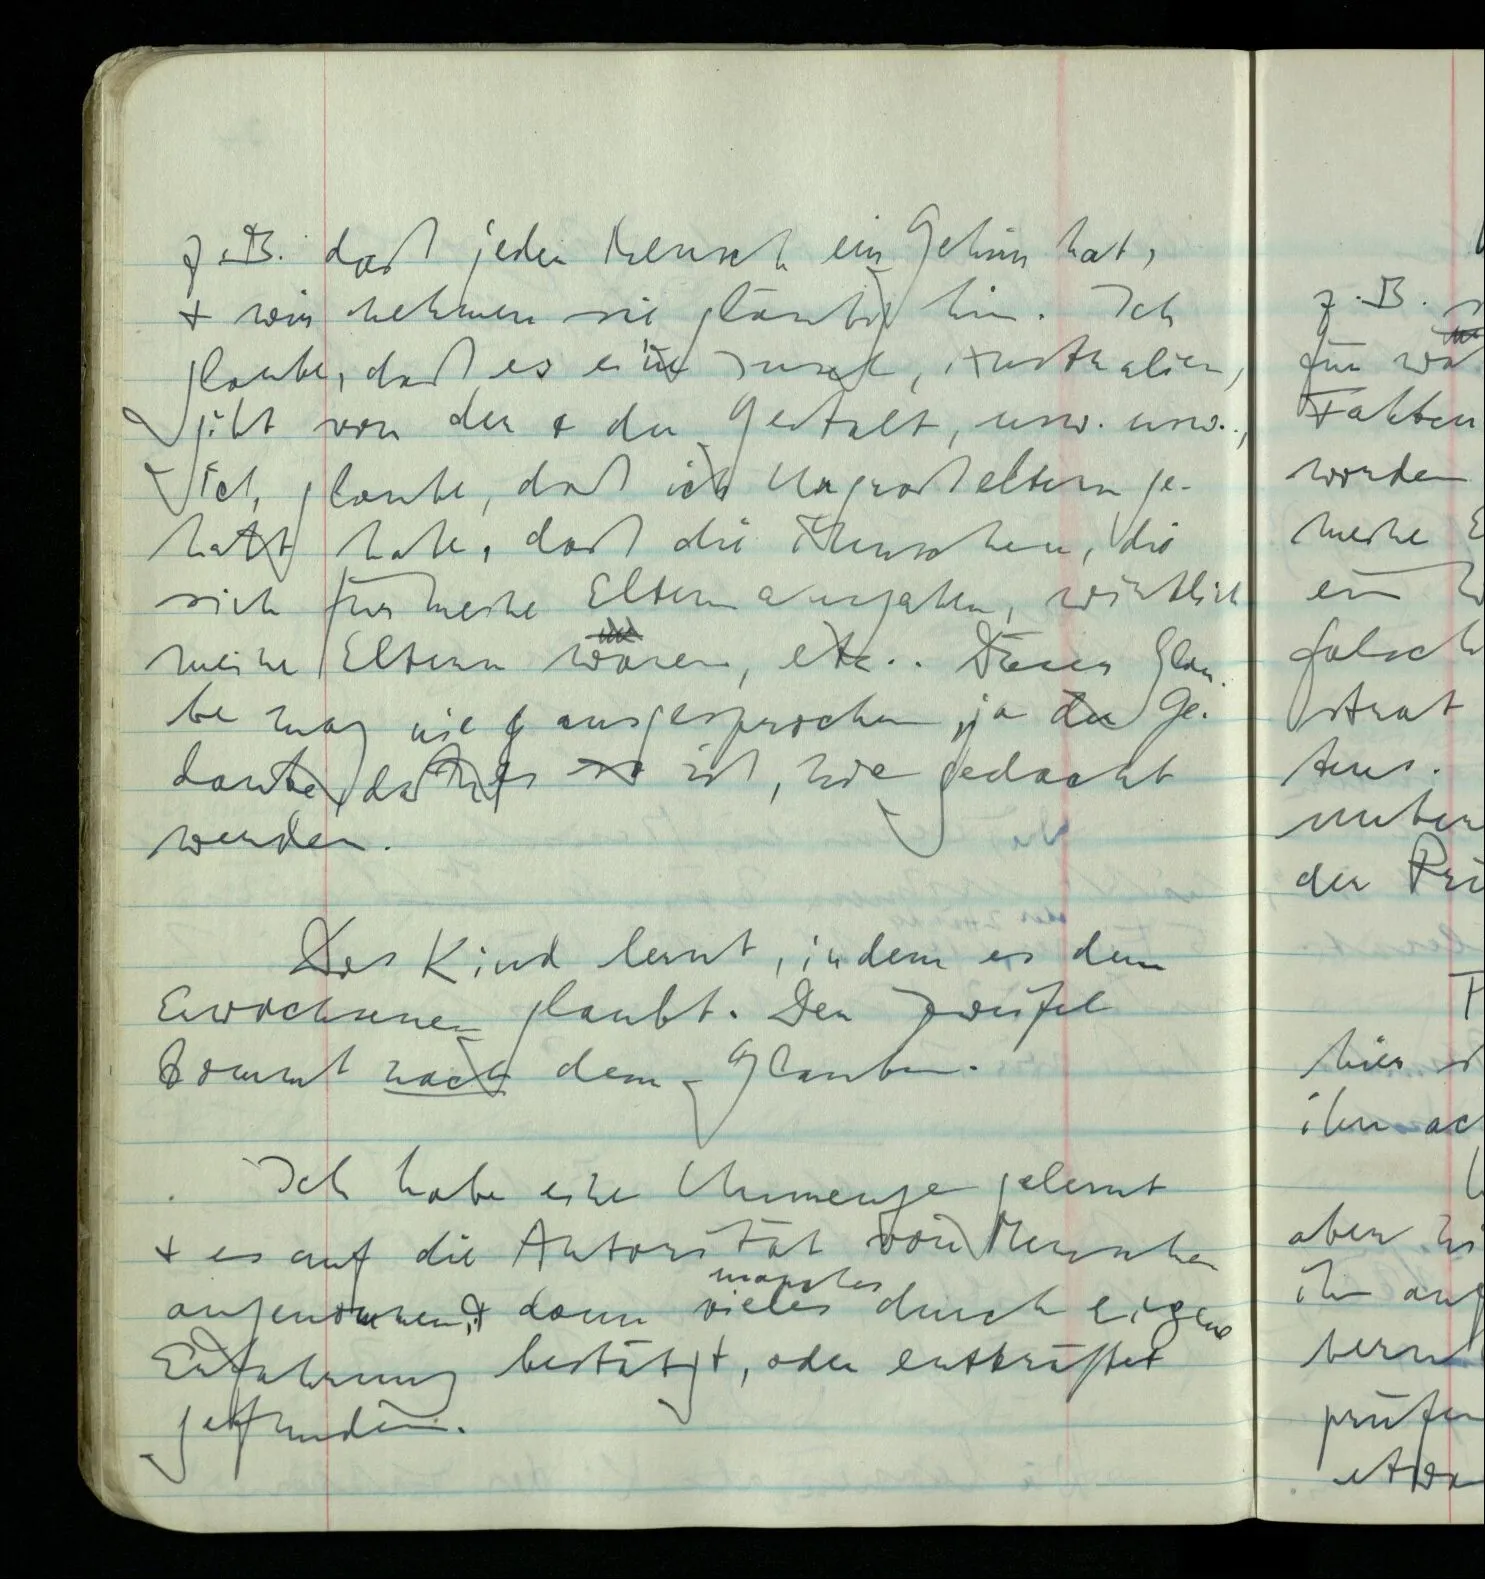 z.B. daß jeder Mensch ein Gehirn hat,
+ wir nehmen sie gläubig hin. Ich
glaube, daß es eine Insel, Australien,
gibt von der + der Gestalt, usw. usw.,
ich glaube, daß ich Urgroßeltern ge-
habt habe, daß die Menschen, die
sich für meine Eltern ausgaben, wirklich
meine Eltern waren, etc.. Dieser Glau-
be mag nie ausgesprochen, ja der Ge-
danke, daß es so ist, nie gedacht
werden.
Das Kind lernt, indem es dem
Erwachsenen glaubt. Der Zweifel
kommt nach dem Glauben.
Ich habe eine Unmenge gelernt
+ es auf die Autorität von Menschen
manches
angenommen, + dann vieles durch eigene
Erfahrung bestätigt, oder entkräftet
gefunden.
z.B.
für
Fakten
worden
meine
ein
falsch
der
hier
ihn
aber
ihn